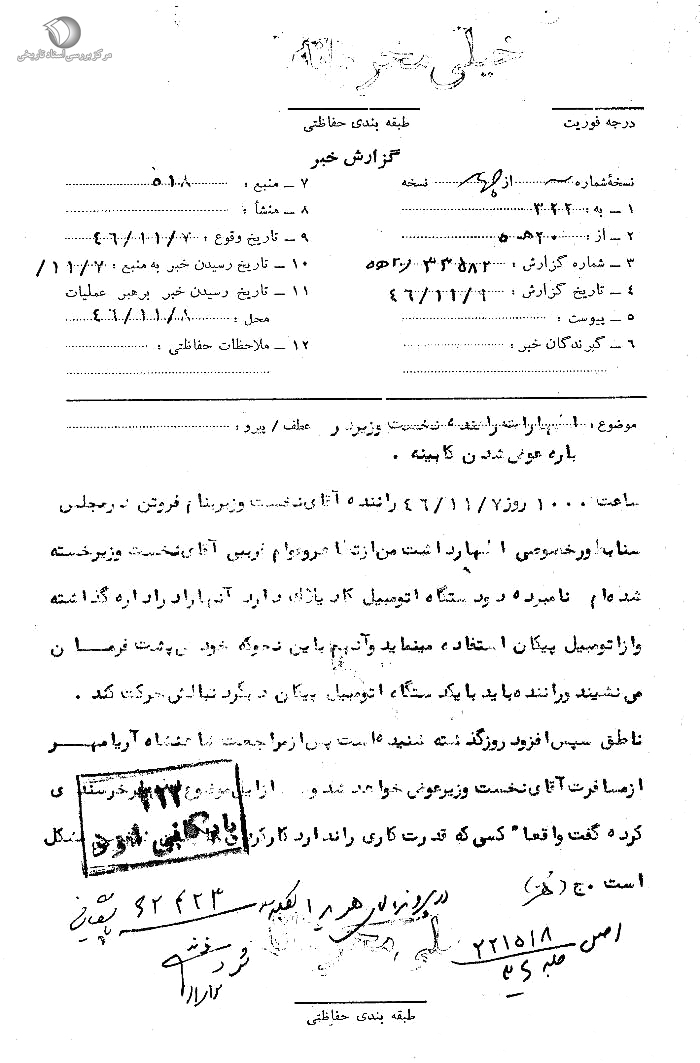 مرکز بررسی اسناد تاریخی
خیلی محرمانه
درجه فوریت
طبقه بندی حفاظتی
گزارش خبر
نسخهٔ شماره از چهار نسخه
۱ ـ به : ۳۲۲
۲ ـ از : ۲۰ ه ۵
۳ ـ شماره گزارش : ۳۳۵۸۲ / ۲۰ ه ۵
۴ ـ تاریخ گزارش : ۴۶/۱۱/۹
۵ ـ پیوست :
۶ ـ گیرندگان خبر :
۷ ـ منبع : ۵۱۸
۸ ـ منشأ :
۹ ـ تاریخ وقوع : ۴۶/۱۱/۷
۱۰ ـ تاریخ رسیدن خبر به منبع : ۱۱/۷/
۱۱ ـ تاریخ رسیدن خبر برهبر عملیات
محل : ۴۶/۱۱/۸
۱۲ ـ ملاحظات حفاظتی :
موضوع : اظهارات راننده نخست وزیر در عطف / پیرو :
باره عوض شدن کابینه .
ساعت ۱۰۰۰ روز ۴۶/۱۱/۷ راننده آقای نخست وزیر بنام فروتن در مجلس
سنا بطور خصوصی اظهار داشت من از آقای نخست وزیر خسته
شده‌ام نامبرده دو دستگاه اتومبیل کادیلاک دارد آنها را در اداره گذاشته
و از اتومبیل پیکان استفاده مینماید و آنهم باین نحو که خودش پشت فرمان
می نشیند و راننده باید با یک دستگاه اتومبیل پیکان دیگر دنبالش حرکت کند .
ناطق سپس افزود روز گذشته شنیده است پس از مراجعت شاهنشاه آریامهر
از مسافرت آقای نخست وزیر عوض خواهد شد و از این موضوع خرسندی
کرده گفت واقعا" کسی که قدرت کاری را ندارد کار کردن مشکل
است . ج (هز)
۳۲۲
بایگانی شود
در پرونده
۶۲۴۲۳
اصل ۲۲۱۵۱۸
جلد ۳۶
خیلی محرمانه
طبقه بندی حفاظتی